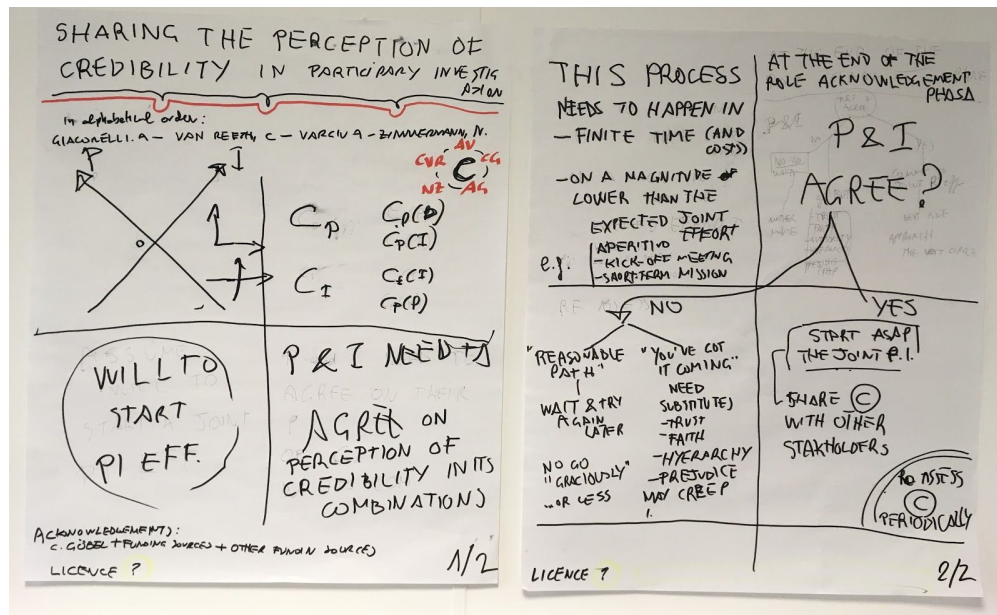 SHARING THE PERCEPTION OF
CREDIBILITY IN PARTICIPARY INVESTIG
ATION
In alphabetical order:
GIACOMELLI. A – VAN REETH, C – VARCIU A – ZIMMERMANN, N.
P
I
AV
CVR
CG
C
NZ
AG
CP
CP(P)
CP(I)
CI
CI(I)
CP(P)
WILL TO
START
PI EFF.
P & I NEEDS
AGREE ON
PERCEPTION OF
CREDIBILITY IN ITS
COMBINATIONS
ACKNOWLEDGEMENTS:
C. GÖBEL + FUNDING SOURCES + OTHER FUNDIN SOURCES
LICENCE ?
1/2
THIS PROCESS
NEEDS TO HAPPEN IN
– FINITE TIME (AND
COSTS)
– ON A MAGNITUDE OF
LOWER THAN THE
EXPECTED JOINT
EFFORT
e.g.
APERITIVO
– KICK-OFF MEETING
– SHORT-TERM MISSION
AT THE END OF THE
ROLE ACKNOWLEDGEMENT
PHASA
P & I
AGREE?
NO
"REASONABLE
PATH"
WAIT & TRY
AGAIN
LATER
NO GO
"GRACIOUSLY"
...OR LESS
"YOU'VE GOT
IT COMING"
NEED
SUBSTITUTES
– TRUST
– FAITH
– HYERARCHY
– PREJUDICE
MAY CREEP
YES
START ASAP
THE JOINT P.I.
SHARE ©
WITH OTHER
STAKHOLDERS
RE ASSESS
©
PERIODICALLY
LICENCE ?
2/2